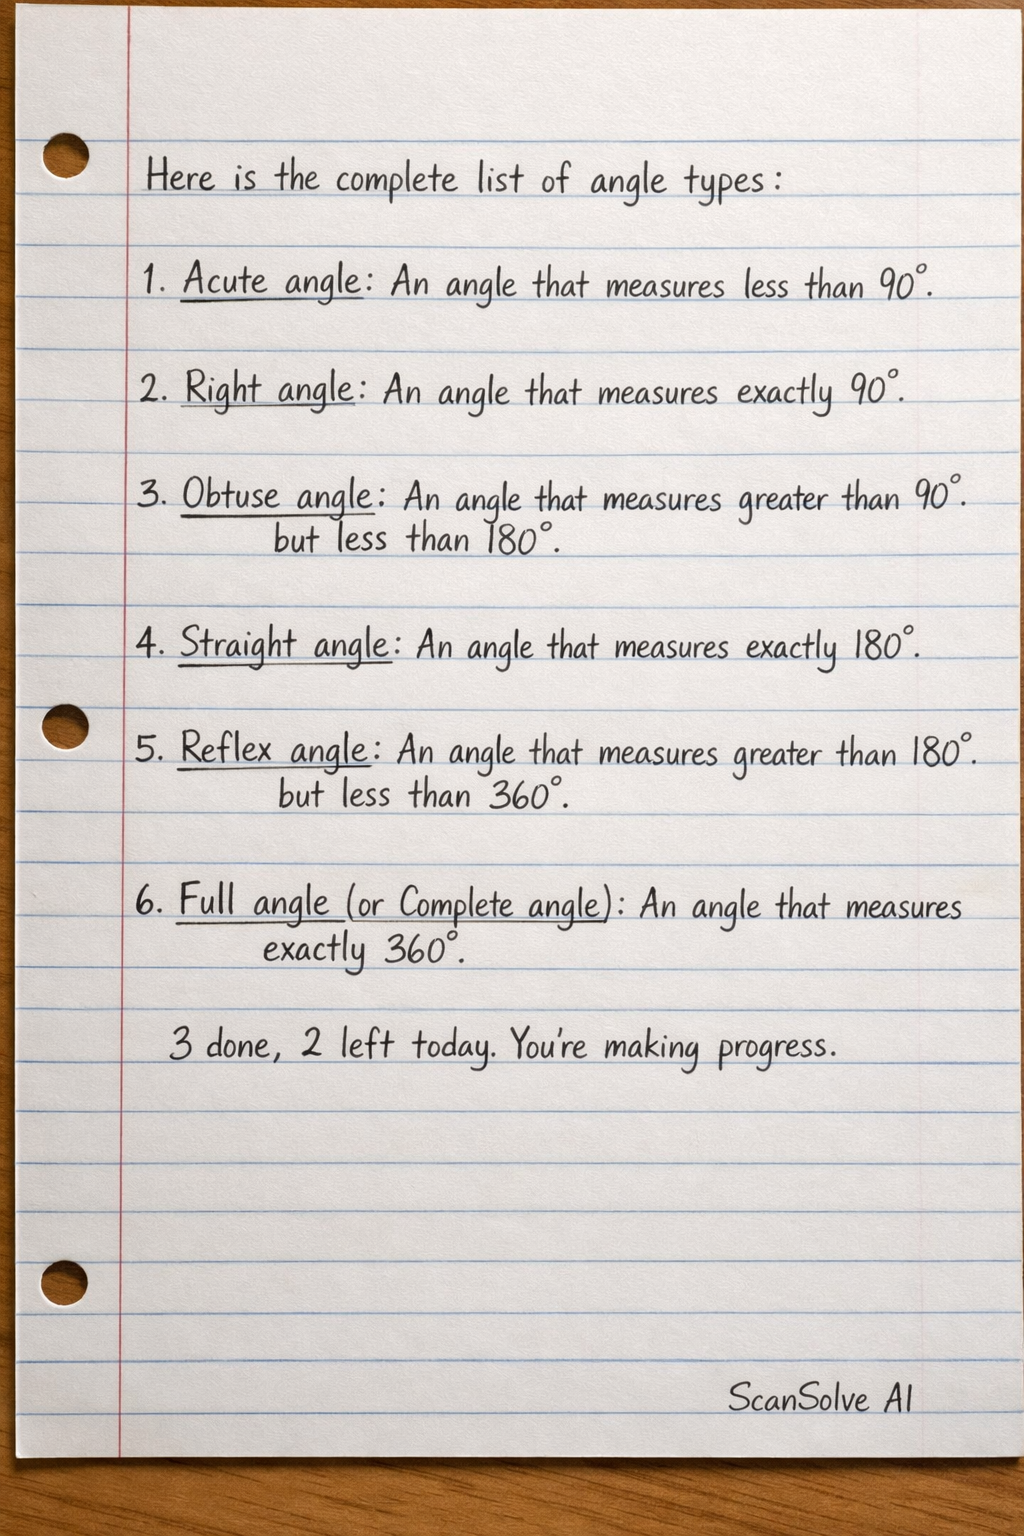 Here is the complete list of angle types:
1. Acute angle: An angle that measures less than 90°.
2. Right angle: An angle that measures exactly 90°.
3. Obtuse angle: An angle that measures greater than 90°.
but less than 180°.
4. Straight angle: An angle that measures exactly 180°.
5. Reflex angle: An angle that measures greater than 180°.
but less than 360°.
6. Full angle (or Complete angle): An angle that measures
exactly 360°.
3 done, 2 left today. You're making progress.
ScanSolve AI